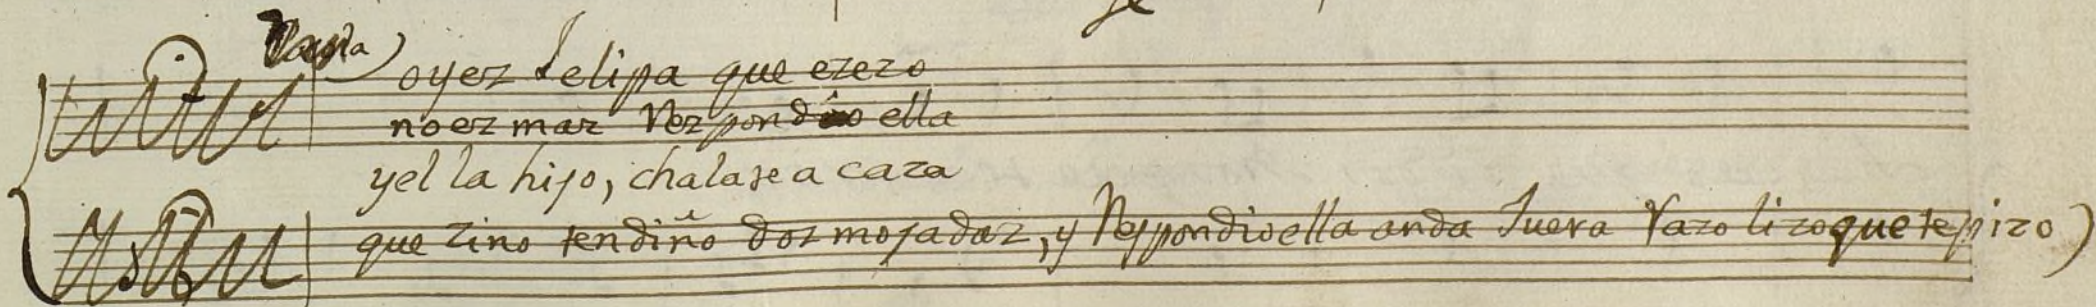 oyez Felipa que ezezo
no ez maz Rezpondio ella
yel la hijo, chalate a caza
que zino tendiño doz mojadaz, y Respondio ella anda fuera Razo lizo que te pizo)